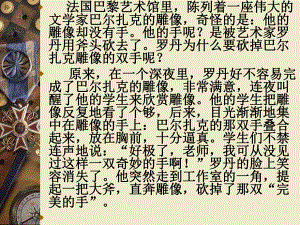 法国巴黎艺术馆里，陈列着一座伟大的
文学家巴尔扎克的雕像，奇怪的是：他的
雕像却没有手。他的手呢？是被艺术家罗
丹用斧头砍去了。罗丹为什么要砍掉巴尔
扎克雕像的双手呢？
原来，在一个深夜里，罗丹好不容易完
成了巴尔扎克的雕像，非常满意，连夜叫
醒了他的学生来欣赏雕像。他的学生把雕
像反复地看了个够，后来，目光渐渐地集
中在雕像的手上：巴尔扎克的那双手叠合
起来，放在胸前，十分逼真。学生们不禁
连声地说，“好极了，老师，我可从没见
过这样一双奇妙的手啊！”罗丹的脸上笑
容消失了。他突然走到工作室的一角，提
起一把大斧，直奔雕像，砍掉了那双“完
美的手”。